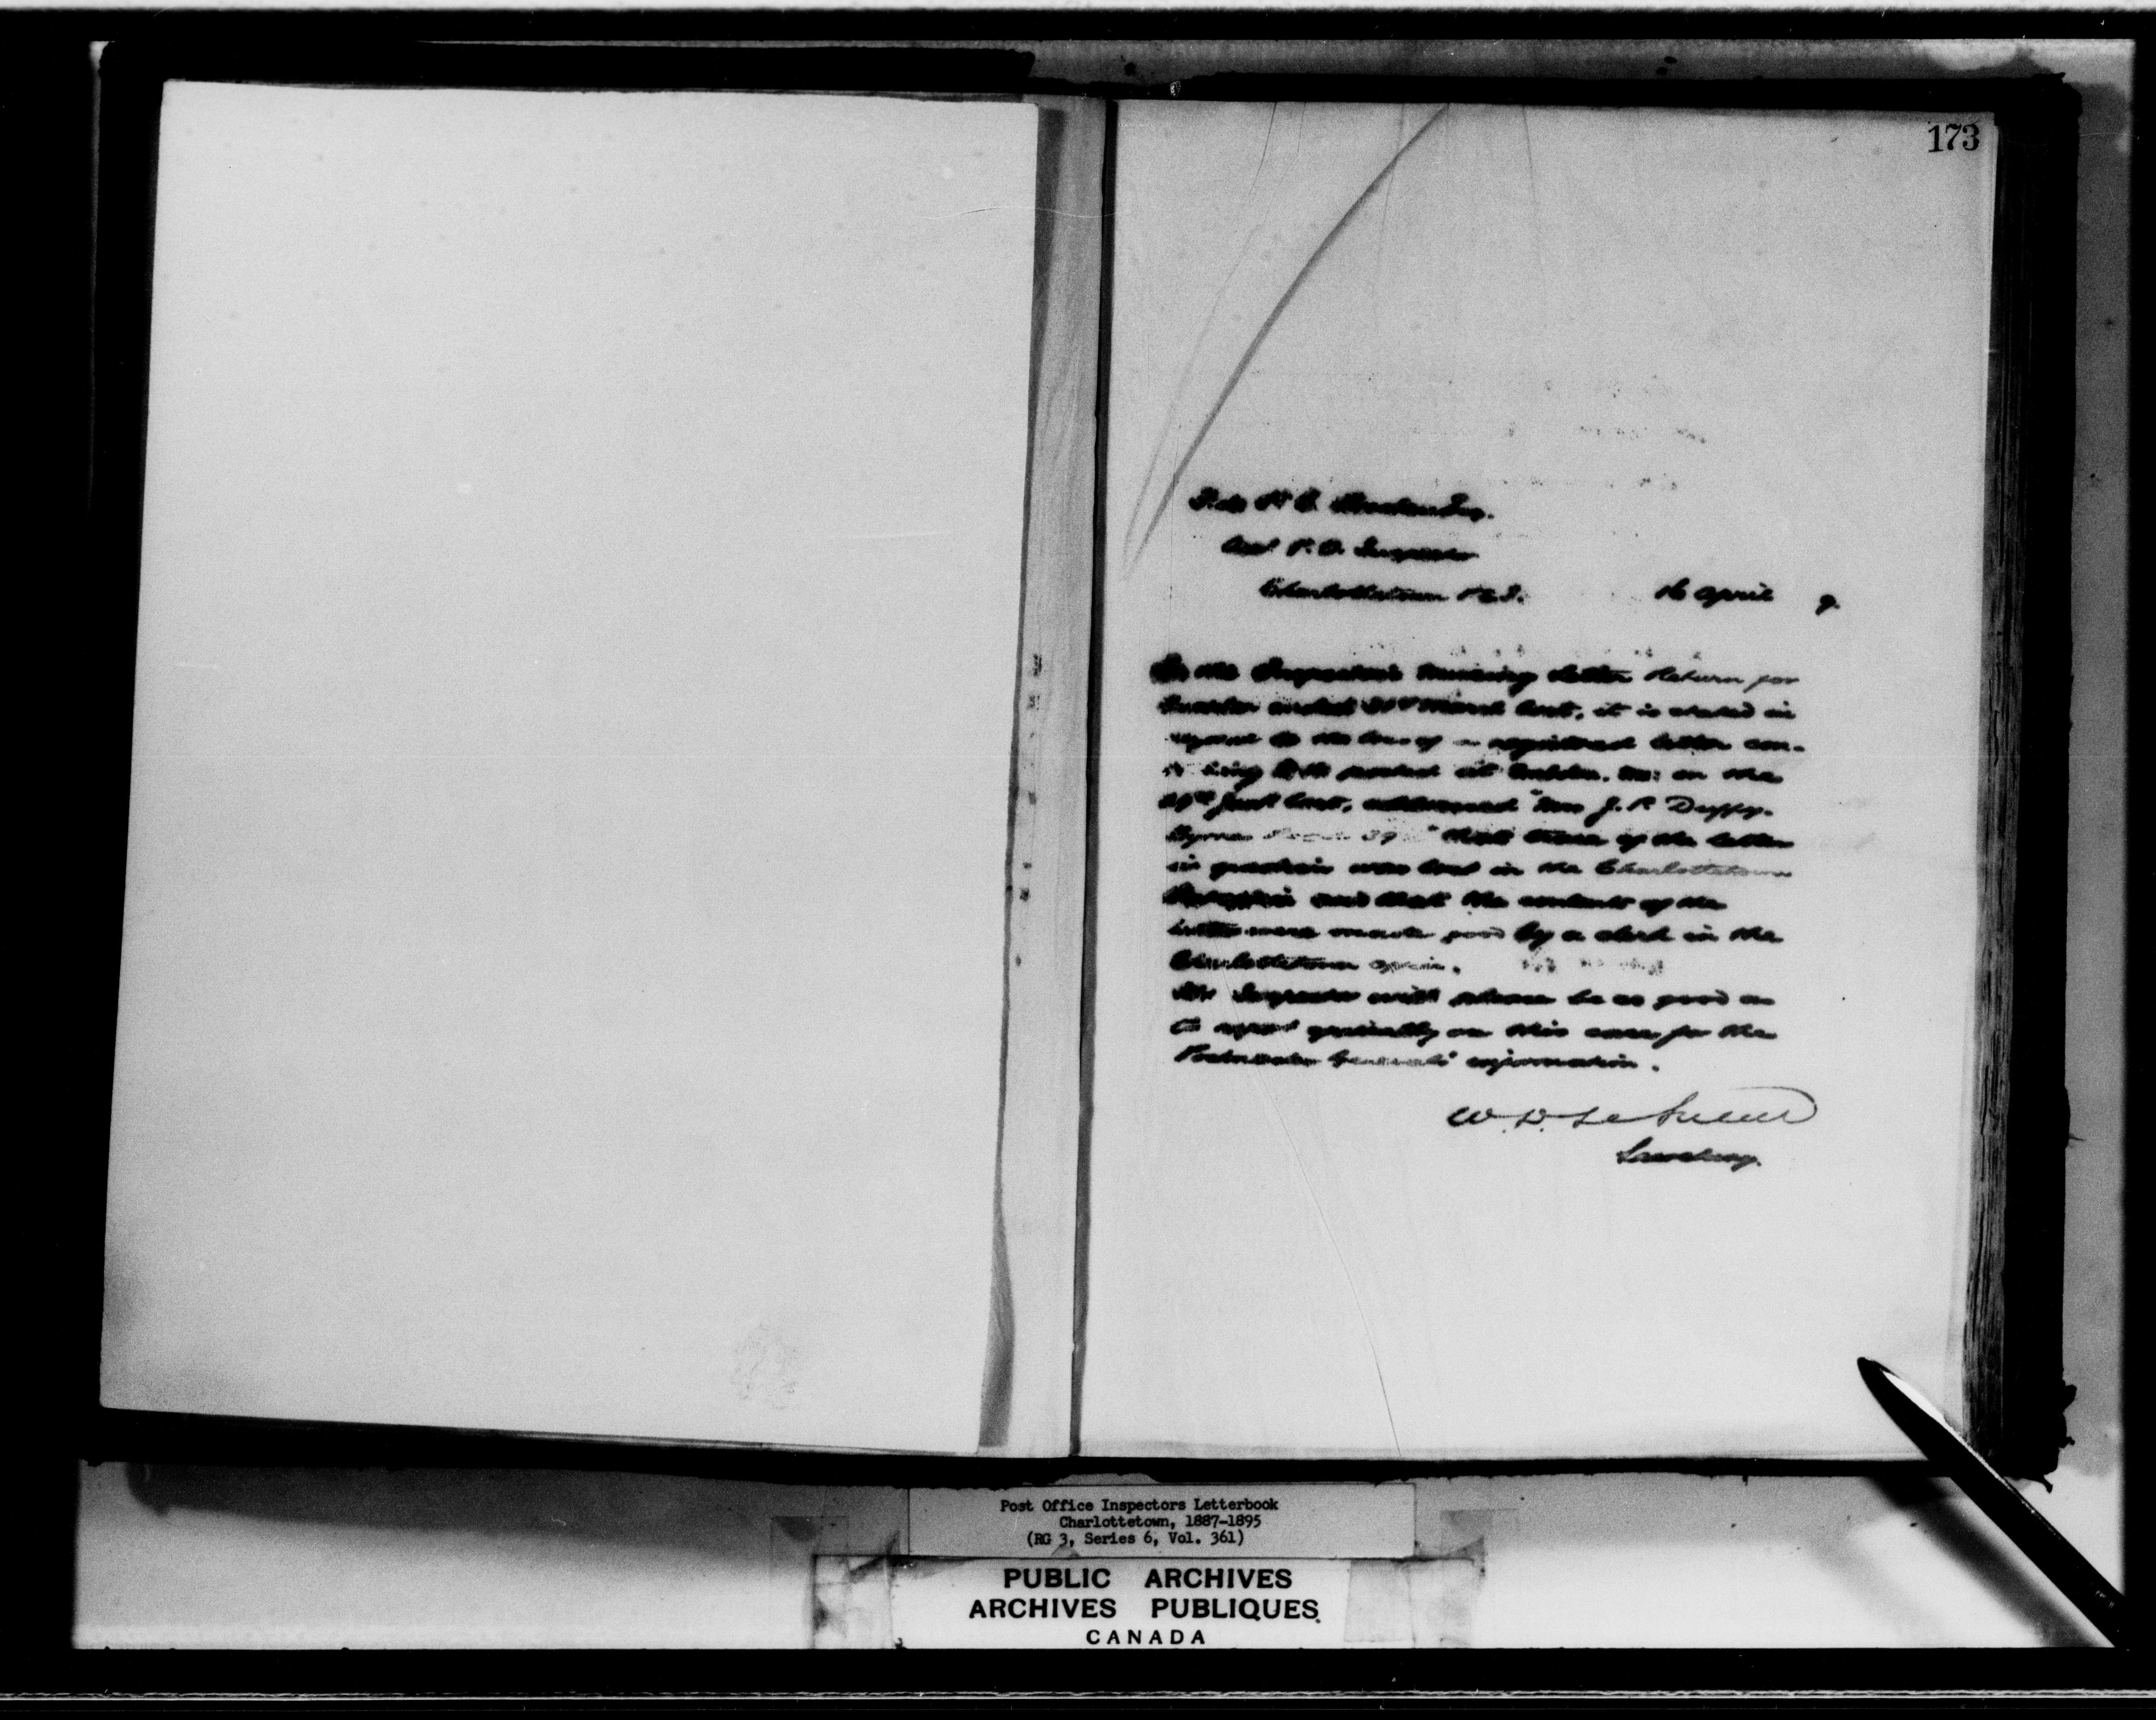 173
P. O. Inspector
Charlottetown P.E.I. 16 April 9.
In the Inspector's missing letter Return for
Quarter ended 31st March last, it is stated in
regard to the loss of a registered letter con-
posted at on the
last, addressed "Mrs J. P. Duffy.
39 " that trace of the letter
in question was lost in the Charlottetown
and that the contents of the
letter were made good by a clerk in the
Charlottetown office.
The Inspector will please be so good as
to report specially on this case for the
Postmaster General's information.
W. D. LeSueur
Secretary.
Post Office Inspectors Letterbook
Charlottetown, 1887-1895
(RG 3, Series 6, Vol. 361)
PUBLIC ARCHIVES
ARCHIVES PUBLIQUES
CANADA